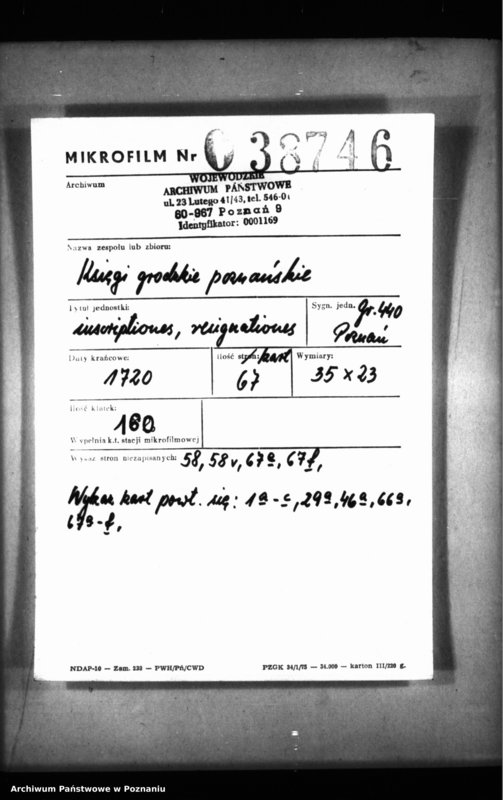 MIKROFILM Nr 038746
Archiwum
WOJEWÓDZKIE
ARCHIWUM PAŃSTWOWE
ul. 23 Lutego 41/43, tel. 546-01
60-967 Poznań 9
Identyfikator: 0001169
Nazwa zespołu lub zbioru:
Księgi grodzkie poznańskie
Tytuł jednostki:
inscriptiones, resignationes
Sygn. jedn. Gr. 440
Poznań
Daty krańcowe:
1720
Ilość stron: kart
67
Wymiary:
35 x 23
Ilość klatek:
160
Wypełnia k.t. stacji mikrofilmowej
Wykaz stron niezapisanych: 58, 58v, 67a, 67f,
Wykaz kart powt. się: 1a-c, 29a, 46a, 66a,
67a-f,
NDAP-10 — Zam. 233 — PWH/Pń/CWD
PZGK 34/1/75 — 34.000 — karton III/220 g.
Archiwum Państwowe w Poznaniu